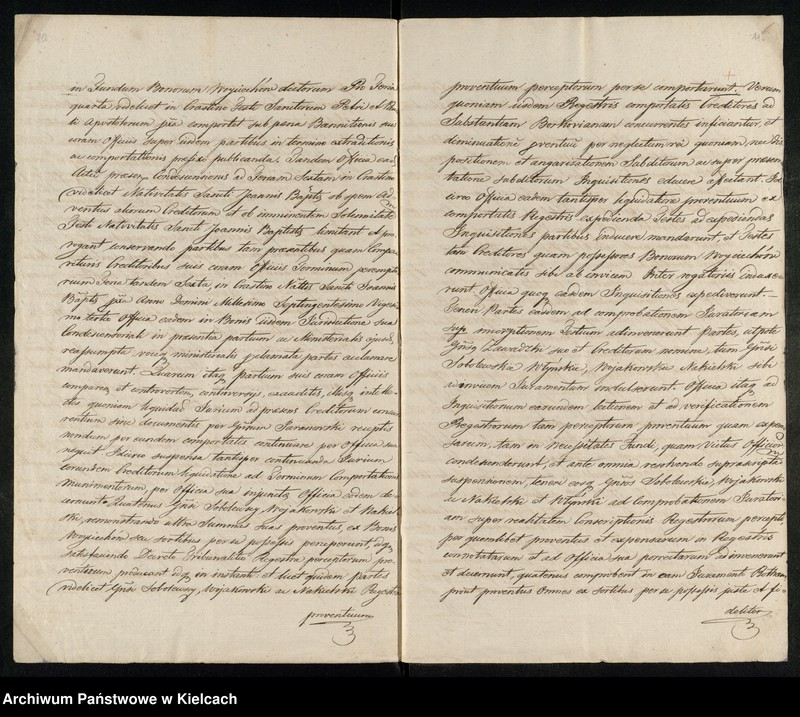 10
in Fundum Bonorum Woyiechów dictorum Pro Feria
quarta videlicet in Crastino Festi Sanctorum Petri et Pau
li Apostolorum comportet sub pena Bannitionis sua
coram Officiis super iisdem partibus in termino extraditionis
ac comportationis prefixo publicanda. Tandem Officia ead
Actu presen Condescensionis ad Feriam Sextam in Crastino
videlicet Nativitatis Sancti Joannis Bapts ob spem ad
ventus aliorum Creditorum et ob imminentem Solemnitatem
Festi Nativitatis Sancti Joannis Baptistæ limitant et pro
rogant conservando partibus tam presentibus quam Compa
rituris Creditoribus suis coram Officiis Terminum perempto
rium Feria tandem Sexta, in Crastino Sancti Joannis
Bapts Anno Domini Millesimo Septingentesimo Viges
mo tertio Officia eadem in Bonis iisdem Jurisdictione sua
Condescensoriali in presentia partium ac Ministerialis ejusd
reassumpta voceq ministeriali partes acclamare
mandaverunt. Quarum itaq partium suis coram Officiis
comparen et controverten, controversys, exauditis,
quoniam liquidas Jurium ad presens Creditorum concur
rentium sive documentis per Taranowski receptis
nondum per eundem comportatis continuare per Officia sua
nequit Idcirco suspensa tantisper continuanda Jurium
eorundem Creditorum liquidatione ad Terminum Comportationis
Munimentorum, per Officia sua injunctæ Officia eadem de
cernunt Quatenus Sobolewsy Woyakowski et Nakiel
ski, remonstrando ultra Summas suas proventus, ex Bonis
Woyiechów seu sortibus per se possessis perceperunt
Satisfaciendo Decreto Tribunalitio Regestra perceptorum pro
ventuum producant in instanti et licet quidem partes
videlicet Sobolewsy, Woyakowski ac Nakielski Regestra
proventuum
11
proventuum perceptorum per se comportarunt. Verum
quoniam iisdem Regestris comportatis Creditores ad
Substantiam Borkovianam concurrentes inficiantur, et
diminutione proventui per neglectum rei quoniam
positionem et angarizationem Subditorum ac super
tatione subditorum Inquisitiones educere affectant. Id
circo Officia eadem tantisper liquidatione proventuum ex
comportatis Regestris expedienda Testes ad expediendas
Inquisitiones partibus inducere mandarunt, et Testes
tam Creditores quam possessores Bonorum Woyiechów
communicatis sibi ad invicem Interrogatoriis induxe
runt Officia quoq easdem Inquisitiones expediverunt.
Tenen Partes easdem ad comprobationem Juratoriam
Testium adinvenerunt Partes, utpote
Zawadzki suo et Creditorum nomine, tum
Sobolewska Wlynski, Woyakowska Nakielski sibi
ad invicem Juramentum indulserunt. Officia itaq ad
Inquisitionum earundem lectionem et ad verificationem
Regestrorum tam perceptorum proventuum quam expen
sarum, tam in necessitates Fundi, quam Victus Officior
condescenderunt, et ante omnia resolvendo suprascriptam
suspensionem, tenere Sobolewski, Woyakowski
ac Nakielski et Wlynski ad Comprobationem Juratori
am super realitatem conscriptionis Regestrorum perceptis
per quemlibet proventus et expensarum in Regestris
connotatarum et ad Officia sua porrectarum adinvenerunt
et decernunt, quatenus comprobent in eam Juramenti Rotham,
proventus Omnes ex Sortibus per se possessis juste et fi
deliter
Archiwum Państwowe w Kielcach